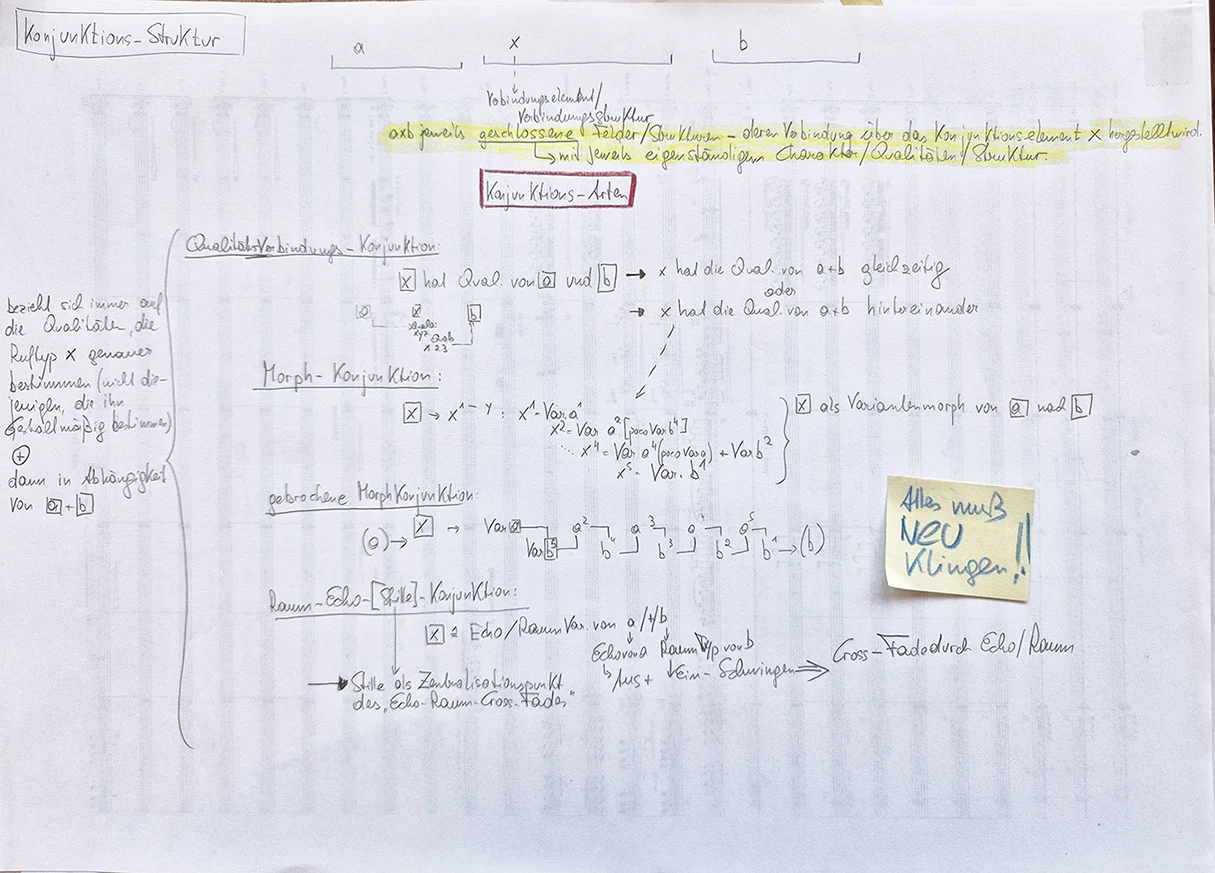 Konjunktions-Struktur
a x b
Verbindungselement/
Verbindungsstruktur
axb jeweils geschlossene Felder/Strukturen - deren Verbindung über das Konjunktionselement x hergestellt wird.
mit jeweils eigenständigem Charakter/Qualitäten/Struktur.
Konjunktions-Arten
QualitätsVerbindungs-Konjunktion:
x hat Qual. von a und b → x hat die Qual. von a+b gleichzeitig
oder
→ x hat die Qual. von a+b hintereinander
a x b
xyz Qab
1 2 3
bezieht sich immer auf
die Qualitäten, die
Ruftyp x genauer
bestimmen (nicht die-
jenigen, die ihn
gestaltmäßig bestimmen)
+
dann in Abhängigkeit
von a + b
Morph-Konjunktion:
x → x¹⁻ʸ : x¹-Var. a¹
x² = Var a² [poco Var b⁴]
x⁴ = Var a⁴ (poco Var a) + Var b²
x⁵ = Var. b¹
x als Variantenmorph von a nach b
gebrochene MorphKonjunktion:
(a) → x → Var a a² a³ a⁴ a⁵
Var b⁵ b⁴ b³ b² b¹ → (b)
Alles muß
NEU
Klingen!!
Raum-Echo-[Stille]-Konjunktion:
x ≙ Echo/Raum Var. von a/+/b
Echo von a Raumtyp von b
Aus + Ein-Schwingen ⇒ Cross-Fade durch Echo/Raum
→ Stille als Zentralisationspunkt
des „Echo-Raum-Cross-Fades"